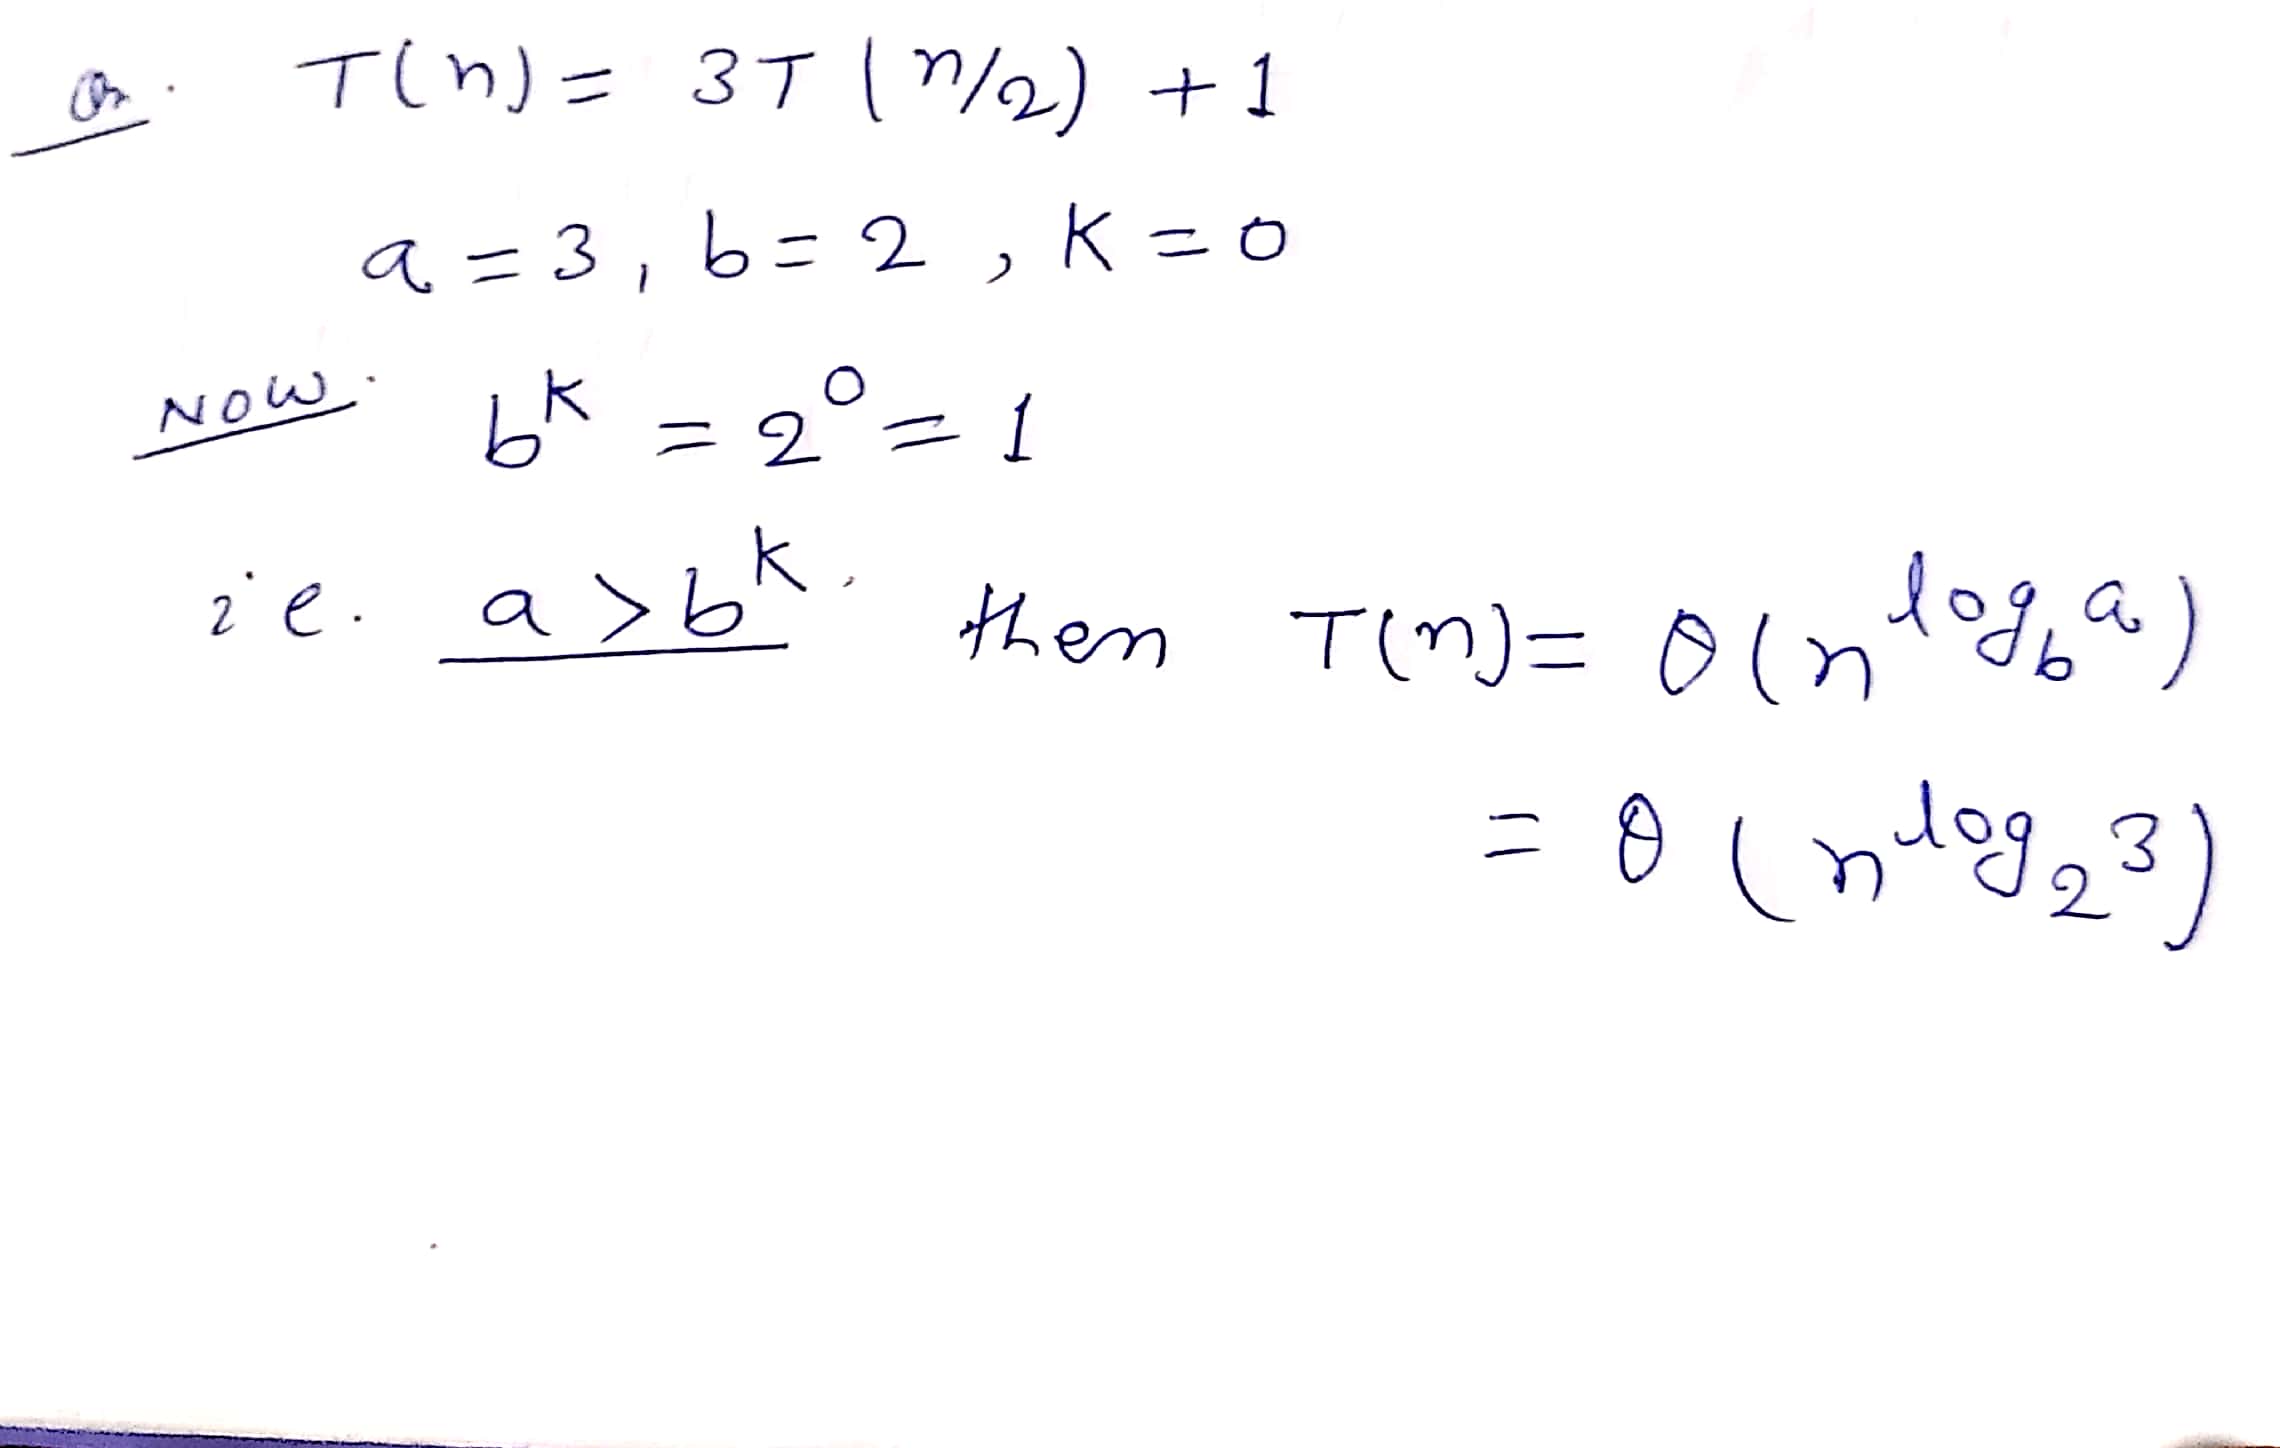 Qn. T(n) = 3T(n/2) + 1
a = 3, b = 2, K = 0
NOW. b^K = 2^0 = 1
ie. a > b^K, then T(n) = θ(n^log_b a)
= θ(n^log_2 3)